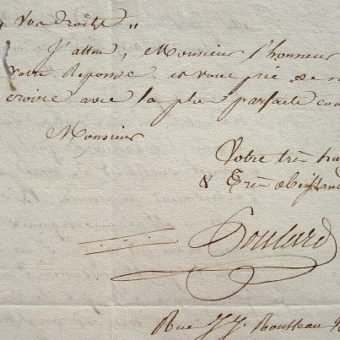 Vos droits "
J'attens, Monsieur l'honneur
votre Reponse et vous prie de
croire avec la plus parfaite con
Monsieur
Votre très hu
& très obéissan
Boulard
Rue J.J. Rousseau N